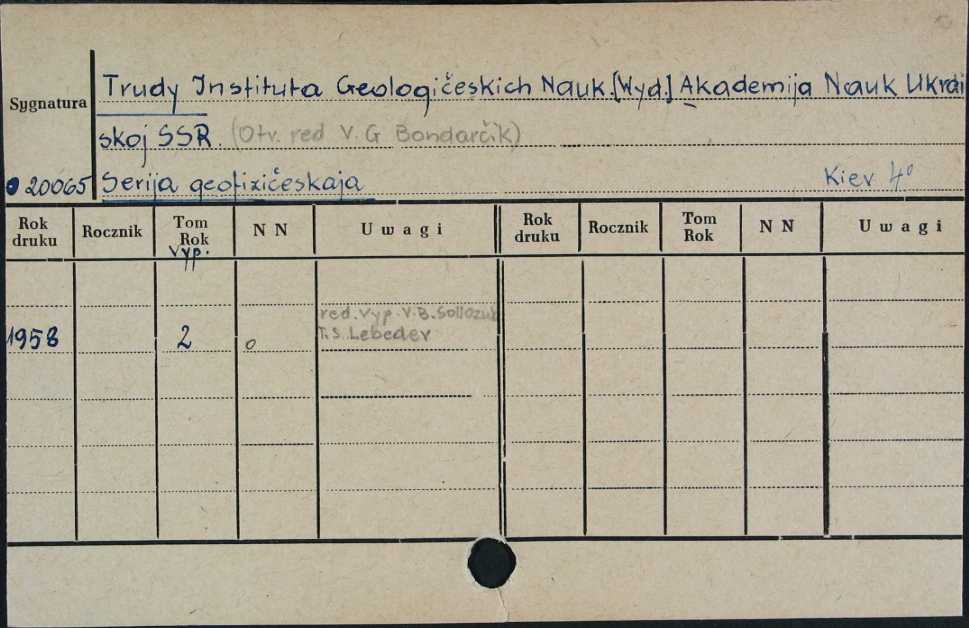 Trudy Instituta Geologičeskich Nauk.[Wyd.] Akademija Nauk Ukrai
Sygnatura
skoj SSR. (Otv. red V. G Bondarčik)
20065 Serija geofizičeskaja Kiev 4°
Rok druku Rocznik Tom Rok Vyp. N N Uwagi Rok druku Rocznik Tom Rok N N Uwagi
red. Vyp. V.B. Sollozub
1958 2 o T.S. Lebedev